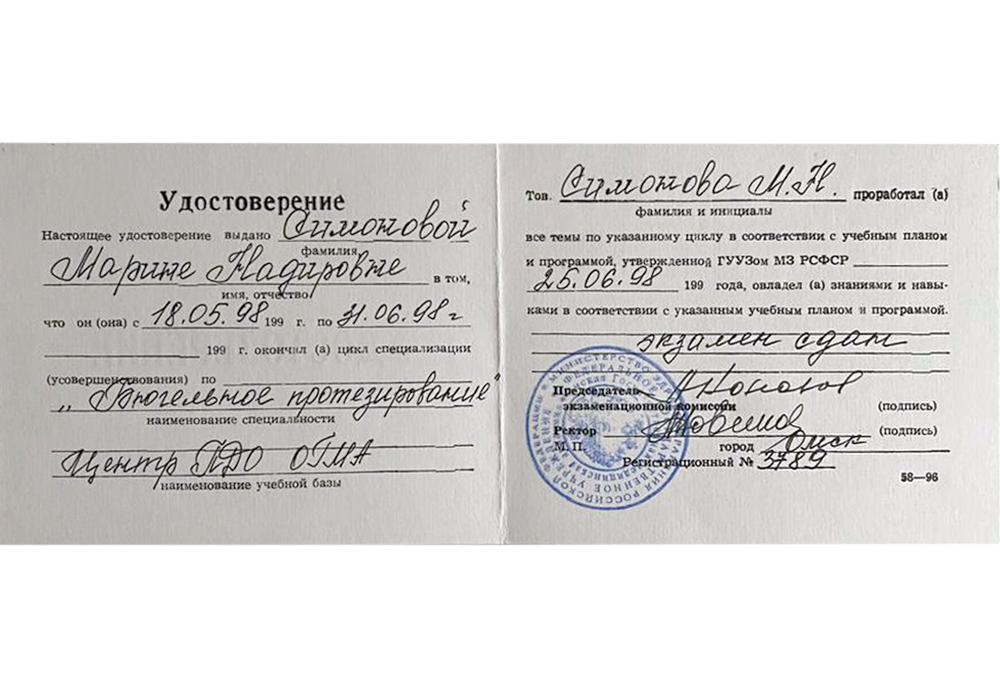 Удостоверение
Настоящее удостоверение выдано Симоновой
фамилия
Марине Надировне в том,
имя, отчество
что он (она) с 18.05.98 199 г. по 31.06.98 г
199 г. окончил (а) цикл специализации
(усовершенствования) по
„Бюгельное протезирование"
наименование специальности
Центр ПДО ОГМА
наименование учебной базы
Тов. Симонова М.Н. проработал (а)
фамилия и инициалы
все темы по указанному циклу в соответствии с учебным планом
и программой, утвержденной ГУУЗом МЗ РСФСР
25.06.98 199 года, овладел (а) знаниями и навы-
ками в соответствии с указанным учебным планом и программой.
экзамен сдан
Председатель
экзаменационной комиссии (подпись)
Ректор (подпись)
М. П. город Омск
Регистрационный № 3789
58—96